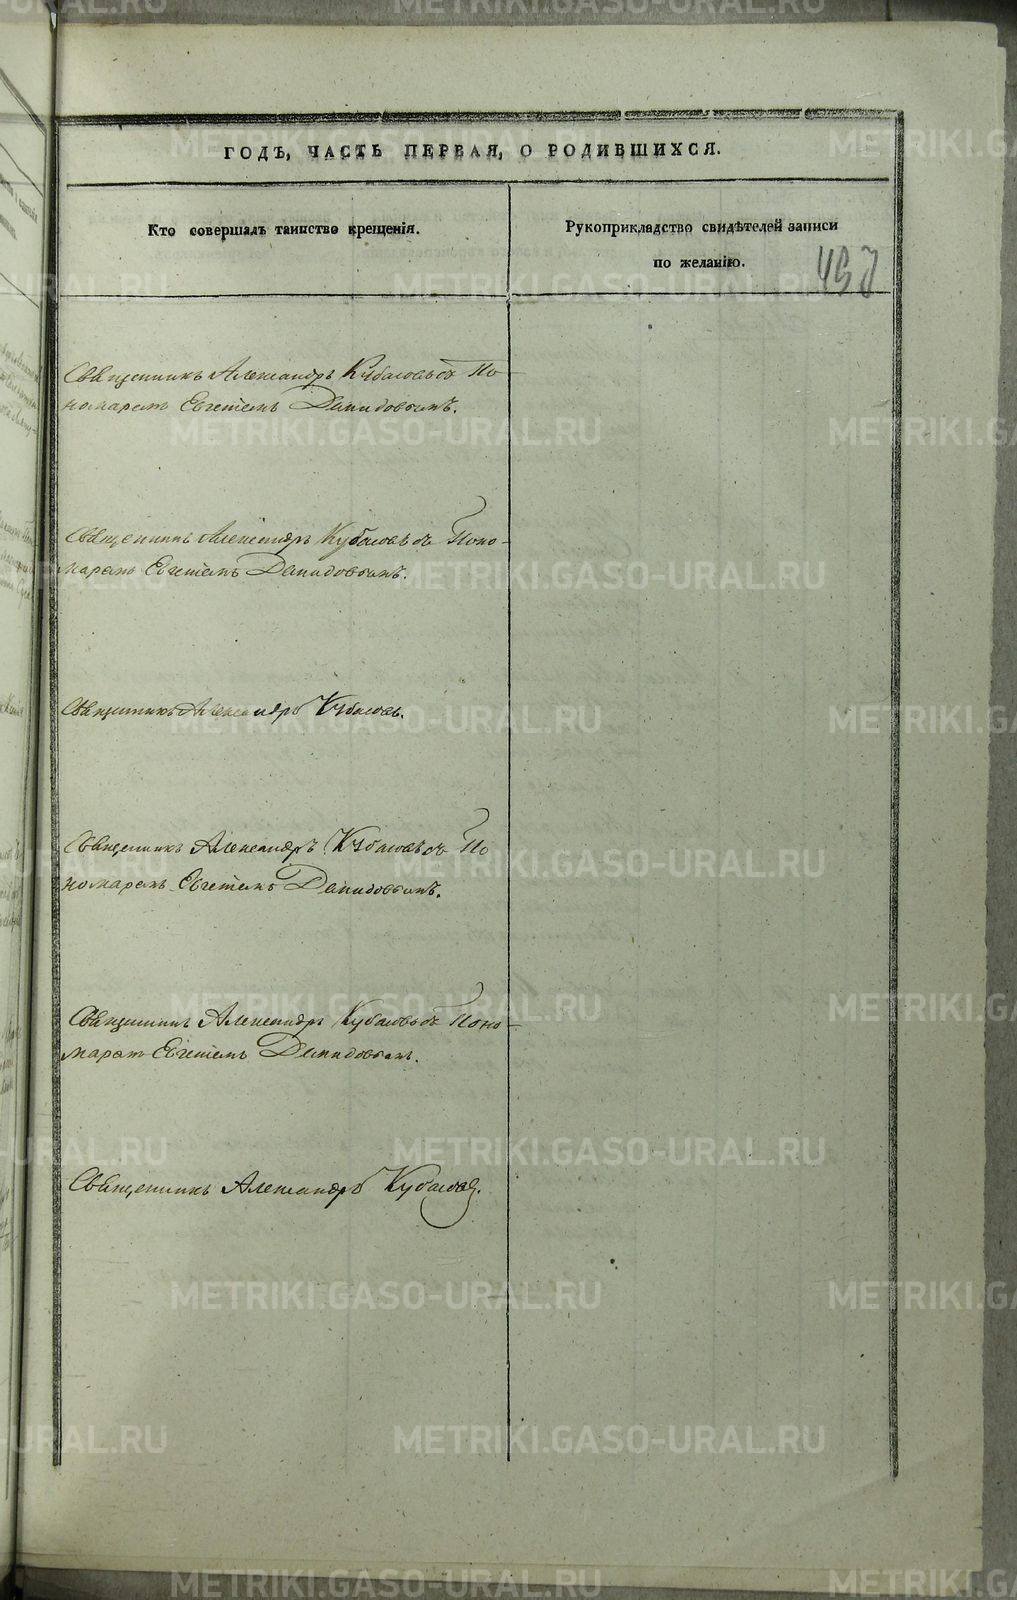 ГОДЪ, ЧАСТЬ ПЕРВАЯ, О РОДИВШИХСЯ.
Кто совершалъ таинство крещенія.
Рукоприкладство свидѣтелей записи
по желанію.
Священникъ Александръ Кубасовъ съ По-
номаремъ Давидовымъ.
Священникъ Александръ Кубасовъ съ Поно-
маремъ Давидовымъ.
Священникъ Александръ Кубасовъ.
Священникъ Александръ Кубасовъ съ По
номаремъ Давидовымъ.
Священникъ Александръ Кубасовъ съ Поно-
маремъ Давидовымъ.
Священникъ Александръ Кубасовъ.
METRIKI.GASO-URAL.RU